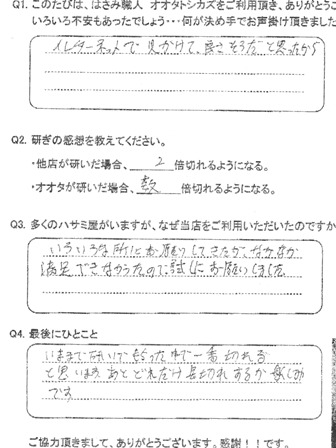 Q1. このたびは、はさみ職人 オオタトシカズをご利用頂き、ありがとうご
いろいろ不安もあったでしょう・・・何が決め手でお声掛け頂きました
インターネットで見かけて、良さそうだと思ったから
Q2. 研ぎの感想を教えてください。
・他店が研いだ場合、 2 倍切れるようになる。
・オオタが研いだ場合、 数 倍切れるようになる。
Q3. 多くのハサミ屋がいますが、なぜ当店をご利用いただいたのですか
いろいろな所にお願いしてきたが、なかなか
満足できなかったので、試しにお願いしました
Q4. 最後にひとこと
いままで研いでもらった中で一番切れる
と思います。あとどれだけ長切れするか楽しみ
です
ご協力頂きまして、ありがとうございます。感謝!!です。